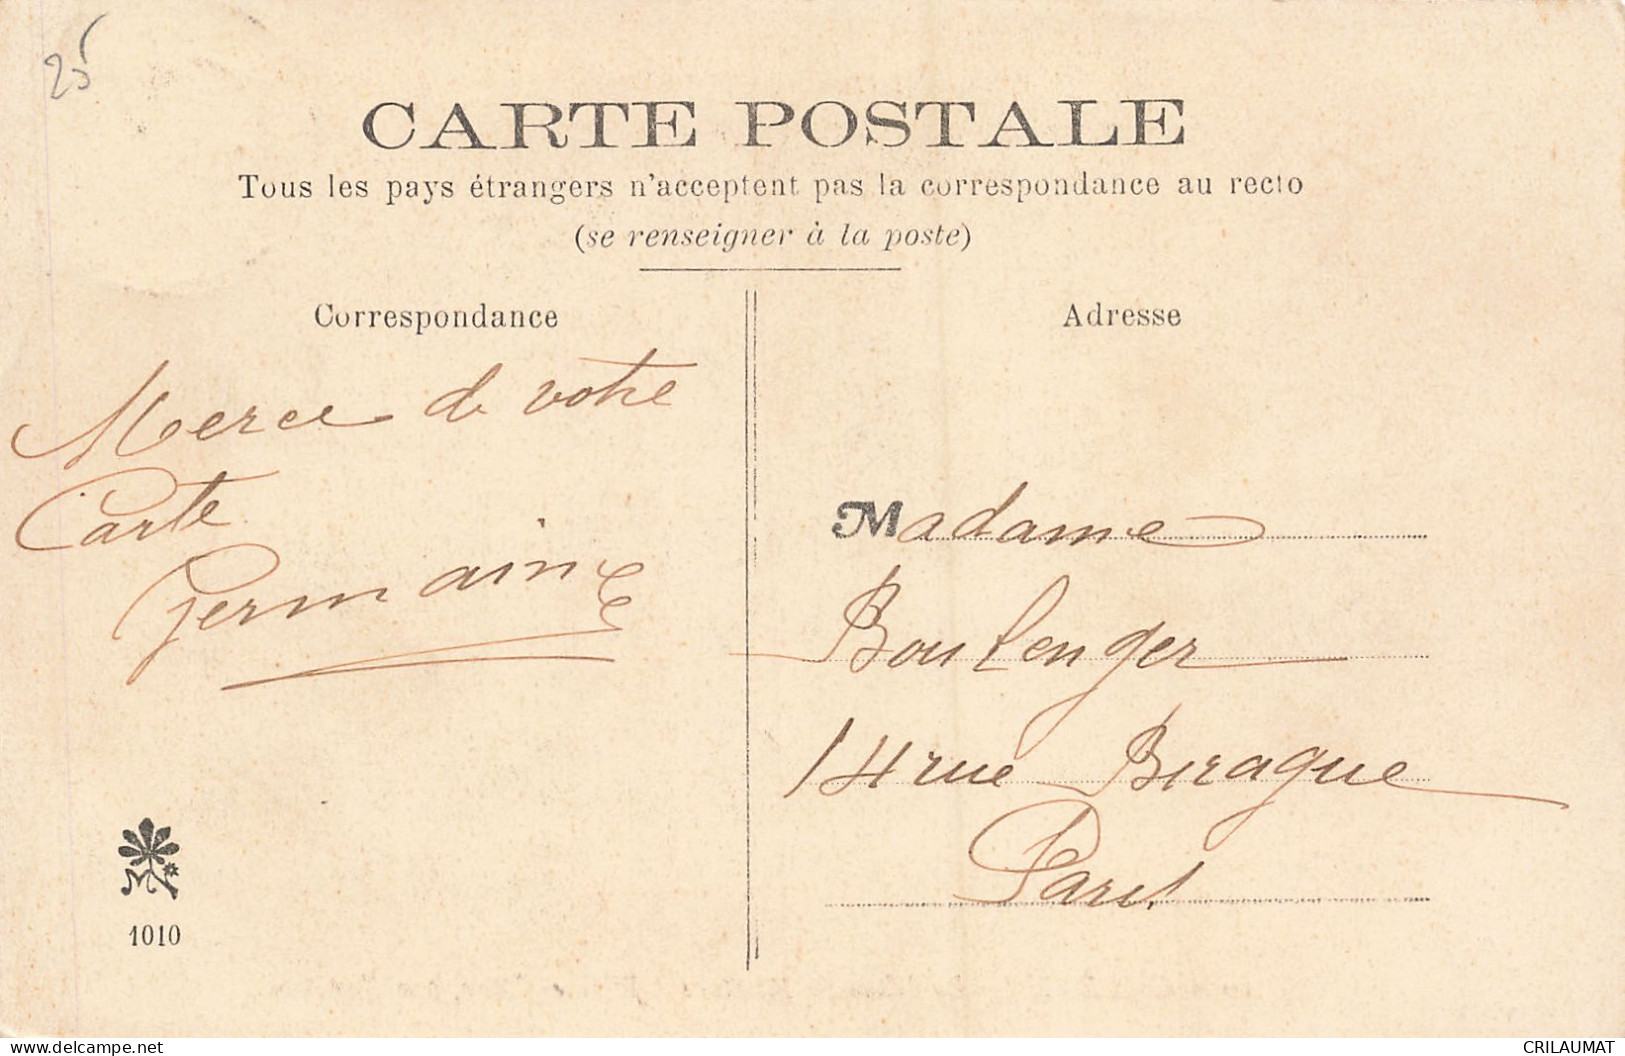 25
CARTE POSTALE
Tous les pays étrangers n'acceptent pas la correspondance au recto
(se renseigner à la poste)
Correspondance
Merci de votre
Carte
Germaine
1010
Adresse
Madame
Boulenger
14 rue Birague
Paris
www.delcampe.net
CRILAUMAT